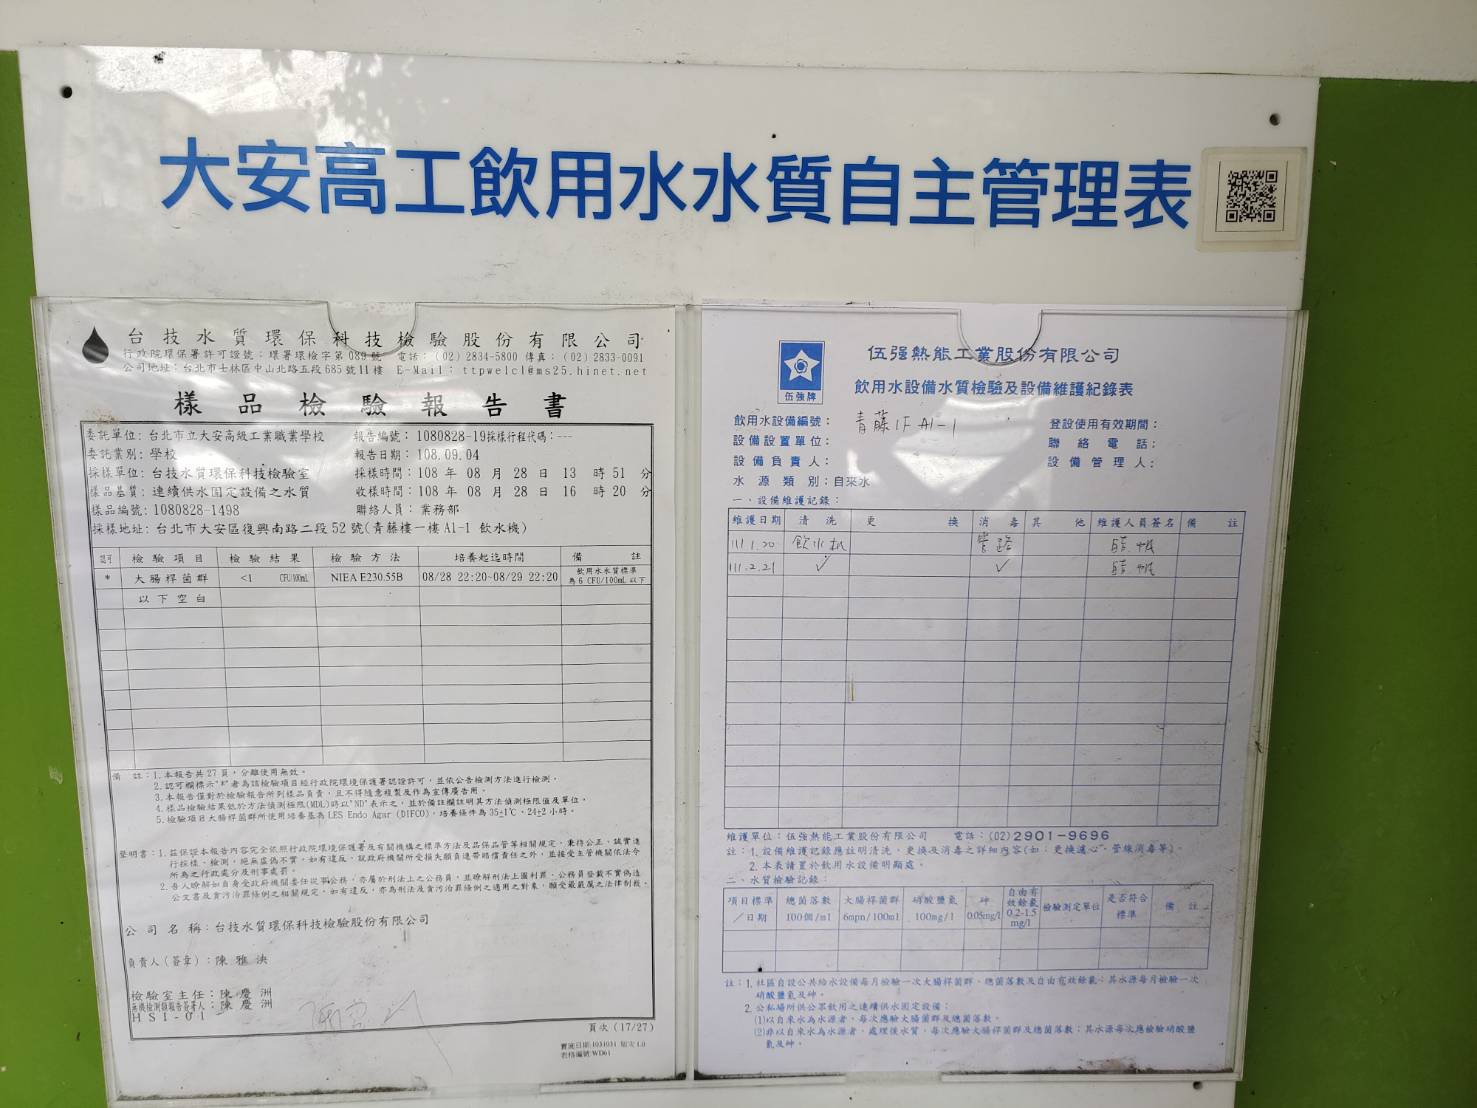 大安高工飲用水水質自主管理表
台技水質環保科技檢驗股份有限公司
行政院環保署許可證號：環署環檢字第089號 電話：(02)2834-5800 傳真：(02)2833-0091
公司地址：台北市士林區中山北路五段685號11樓 E-Mail：ttpwelcl@ms25.hinet.net
樣品檢驗報告書
委託單位：台北市立大安高級工業職業學校 報告編號：1080828-19採樣行程代碼：---
委託業別：學校 報告日期：108.09.04
採樣單位：台技水質環保科技檢驗室 採樣時間：108 年 08 月 28 日 13 時 51 分
樣品基質：連續供水固定設備之水質 收樣時間：108 年 08 月 28 日 16 時 20 分
樣品編號：1080828-1498 聯絡人員：業務部
採樣地址：台北市大安區復興南路二段52號(青藤樓一樓A1-1飲水機)
認可 檢驗項目 檢驗結果 檢驗方法 培養起迄時間 備註
* 大腸桿菌群 <1 CFU/100mL NIEA E230.55B 08/28 22:20~08/29 22:20 飲用水水質標準
為6 CFU/100mL以下
以下空白
備 註：1.本報告共27頁，分離使用無效。
2.認可欄標示"*"者為該檢驗項目經行政院環境保護署認證許可，並依公告檢測方法進行檢測。
3.本報告僅對於檢驗報告所列樣品負責，且不得隨意複製及作為宣傳廣告用。
4.樣品檢驗結果低於方法偵測極限(MDL)時以"ND"表示之，並於備註欄註明其方法偵測極限值及單位。
5.檢驗項目大腸桿菌群所使用培養基為LES Endo Agar (DIFCO)，培養條件為35±1℃、24±2小時。
聲明書：1.茲保證本報告內容完全依照行政院環境保護署及有關機構之標準方法及品保品管等相關規定，秉持公正、誠實進
行採樣、檢測，絕無虛偽不實，如有違反，就政府機關所受損失願負連帶賠償責任之外，並接受主管機關依法令
所為之行政處分及刑事處罰。
2.吾人瞭解如自身受政府機關委任從事公務，亦屬於刑法上之公務員，並瞭解刑法上圖利罪、公務員登載不實偽造
公文書及貪污治罪條例之相關規定，如有違反，亦為刑法及貪污治罪條例之適用之對象，願受最嚴厲之法律制裁。
公司名稱：台技水質環保科技檢驗股份有限公司
負責人(簽章)：陳雅泱
檢驗室主任：陳慶洲
無機檢測類報告簽署人：陳慶洲
HSI-01
頁次(17/27)
表格編號:WD61
伍強牌
伍强熱能工業股份有限公司
飲用水設備水質檢驗及設備維護紀錄表
飲用水設備編號： 青藤1F A1-1 登設使用有效期間：
設備設置單位： 聯絡電話：
設備負責人： 設備管理人：
水源類別：自來水
一、設備維護記錄：
維護日期 清洗 更換 消毒 其他 維護人員簽名 備註
111.1.20 飲水机 管路
111.2.21 ✓ ✓
維護單位：伍強熱能工業股份有限公司 電話：(02)2901-9696
註：1.設備維護記錄應註明清洗、更換及消毒之詳細內容(如：更換濾心、管線消毒等)。
2.本表請置於飲用水設備明顯處。
二、水質檢驗記錄：
項目標準／日期 總菌落數 100個/ml 大腸桿菌群 6mpn/100ml 硝酸鹽氮 100mg/l 砷 0.05mg/l 自由有效餘氯 0.2-1.5 mg/l 檢驗測定單位 是否符合標準 備註
註：1.社區自設公共給水設備每月檢驗一次大腸桿菌群、總菌落數及自由有效餘氯；其水源每月檢驗一次
硝酸鹽氮及砷。
2.公私場所供公眾飲用之連續供水固定設備：
(1)以自來水為水源者，每次應驗大腸菌群及總菌落數。
(2)非以自來水為水源者，處理後水質，每次應驗大腸桿菌群及總菌落數；其水源每次應檢驗硝酸鹽
氮及砷。